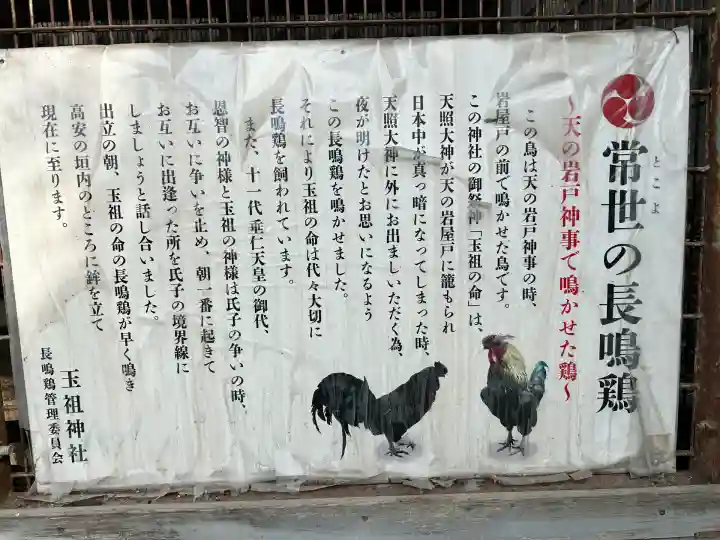 常世の長鳴鶏
とこよ
～天の岩戸神事で鳴かせた鶏～
この鳥は天の岩戸神事の時、
岩屋戸の前で鳴かせた鳥です。
この神社の御祭神「玉祖の命」は、
天照大神が天の岩屋戸に籠もられ
日本中が真っ暗になってしまった時、
天照大神に外にお出ましいただく為、
夜が明けたとお思いになるよう
この長鳴鶏を鳴かせました。
それにより玉祖の命は代々大切に
長鳴鶏を飼われています。
また、十一代 垂仁天皇の御代、
恩智の神様と玉祖の神様は氏子の争いの時、
お互いに争いを止め、朝一番に起きて
お互いに出逢った所を氏子の境界線に
しましょうと話し合いました。
出立の朝、玉祖の命の長鳴鶏が早く鳴き
高安の垣内のところに鉾を立て
現在に至ります。
玉祖神社
長鳴鶏管理委員会